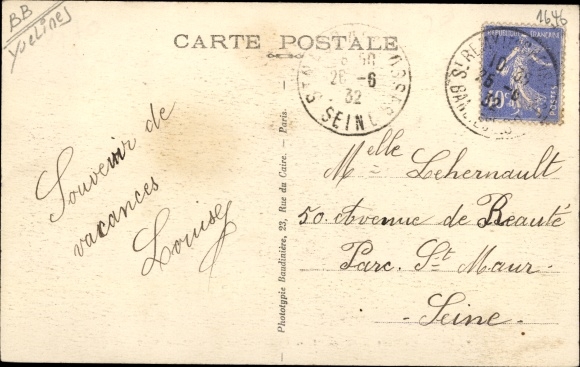 BB
Yvelines
1646
CARTE POSTALE
26 -6
32
SEINE
RÉPUBLIQUE FRANÇAISE
POSTES
ST RE
10
26 -6
32
Souvenir de
vacances
Louise
Phototypie Baudinière, 23, Rue du Caire. - Paris.
Melle Lehernault
50. Avenue de Beauté
Parc. St Maur-
- Seine -